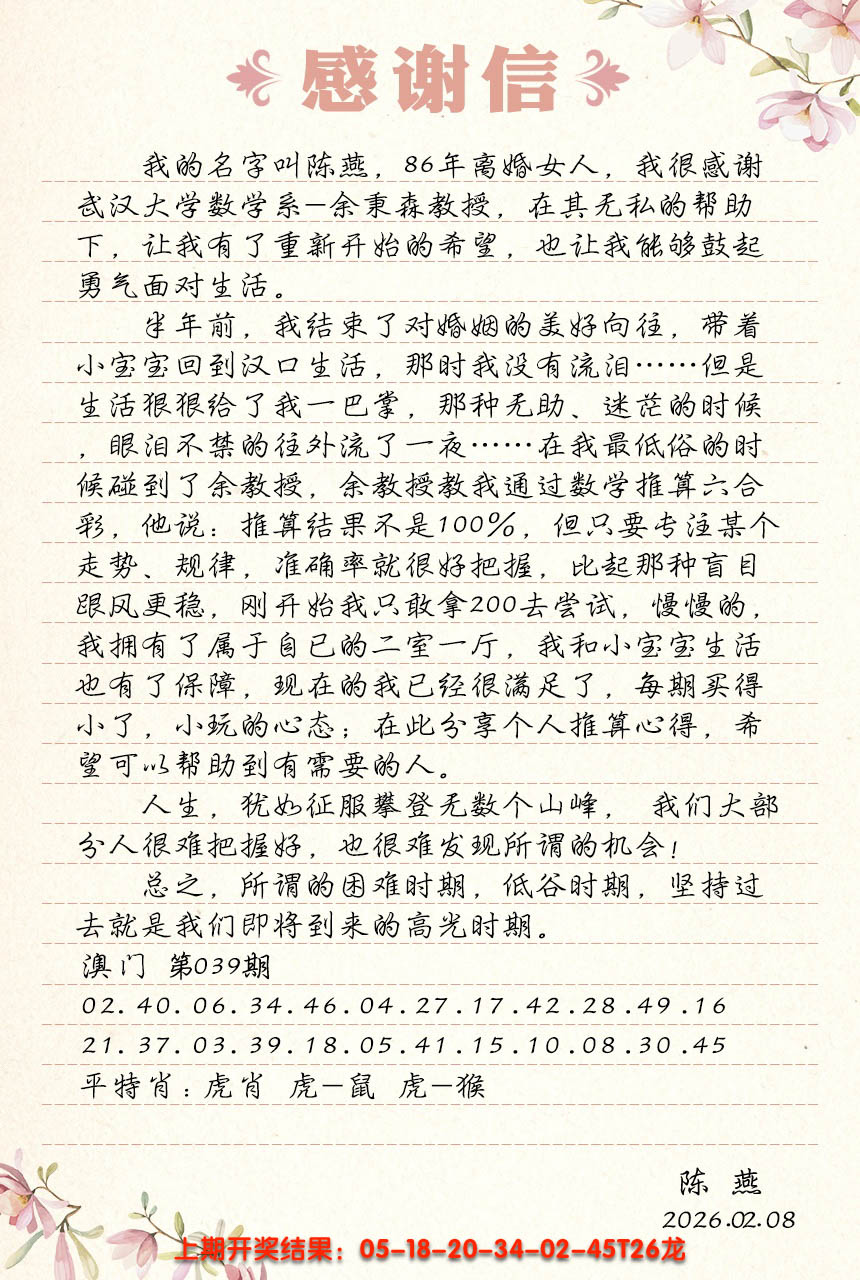 感谢信
我的名字叫陈燕，86年离婚女人，我很感谢
武汉大学数学系—余秉森教授，在其无私的帮助
下，让我有了重新开始的希望，也让我能够鼓起
勇气面对生活。
半年前，我结束了对婚姻的美好向往，带着
小宝宝回到汉口生活，那时我没有流泪……但是
生活狠狠给了我一巴掌，那种无助、迷茫的时候
，眼泪不禁的往外流了一夜……在我最低俗的时
候碰到了余教授，余教授教我通过数学推算六合
彩，他说：推算结果不是100%，但只要专注某个
走势、规律，准确率就很好把握，比起那种盲目
跟风更稳，刚开始我只敢拿200去尝试，慢慢的，
我拥有了属于自已的二室一厅，我和小宝宝生活
也有了保障，现在的我已经很满足了，每期买得
小了，小玩的心态；在此分享个人推算心得，希
望可以帮助到有需要的人。
人生，犹如征服攀登无数个山峰， 我们大部
分人很难把握好，也很难发现所谓的机会！
总之，所谓的困难时期，低谷时期，坚持过
去就是我们即将到来的高光时期。
澳门 第039期
02.40.06.34.46.04.27.17.42.28.49.16
21.37.03.39.18.05.41.15.10.08.30.45
平特肖：虎肖 虎—鼠 虎—猴
陈 燕
2026.02.08
上期开奖结果：05-18-20-34-02-45T26龙